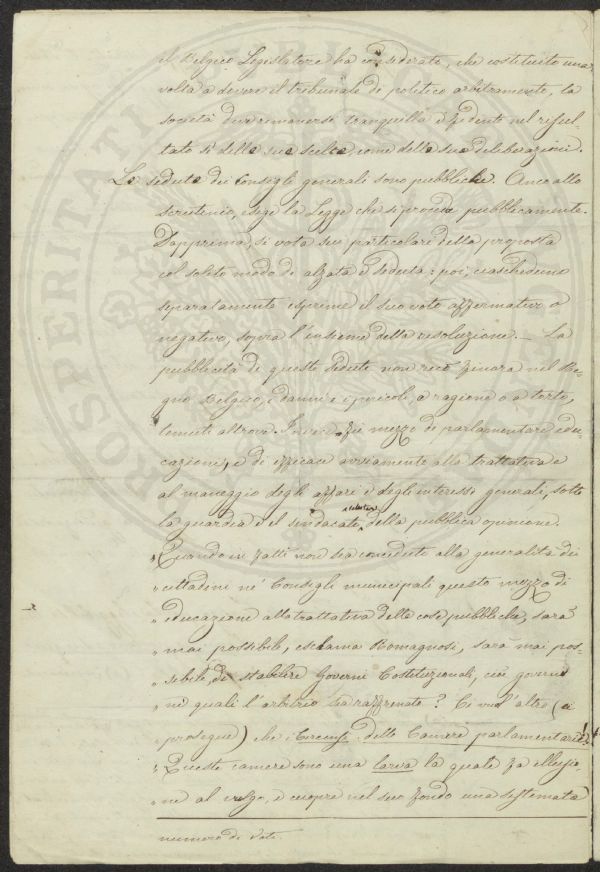 il Belgico Legislatore ha considerato, che costituito una
volta a dovere il tribunale di politico arbitramento, la
società deve rimanersi tranquilla e fidente nel risul-
tato sì delle sue scelte, come delle sue deliberazioni.
Le sedute dei Consigli generali sono pubbliche. Anco allo
scrutinio, esige la Legge che si proceda pubblicamente.
Dapprima, si vota sui particolari della proposta
col solito modo di alzata e seduta: poi, ciascheduno
separatamente esprime il suo voto affermativo o
negativo, sopra l'insieme della risoluzione. — La
pubblicità di queste sedute non recò finora nel Re-
gno Belgico, i danni e i pericoli, a ragione o a torto,
temuti altrove. Invece fu mezzo di parlamentare edu-
cazione, e di efficace avviamento alla trattativa e
al maneggio degli affari e degli interessi generali, sotto
la guardia e il sindacato della pubblica opinione.
„ Quando in fatti non sia conceduto alla generalità dei
„ cittadini ne' Consigli municipali questo mezzo di
„ educazione alla trattativa delle cose pubbliche, sarà
„ mai possibile, esclama Romagnosi, sarà mai pos-
„ sibile, di stabilire Governi Costituzionali, cioè governi
„ ne' quali l'arbitrio sia raffrenato? Ci vuol altro (ei
„ prosegue) che i Circensi delle Camere parlamentarie!
„ Queste camere sono una larva la quale fa illusio-
„ ne al volgo, e cuopre nel suo fondo una sistemata
numero di voti.
PROSPERITATI PUBLICAE